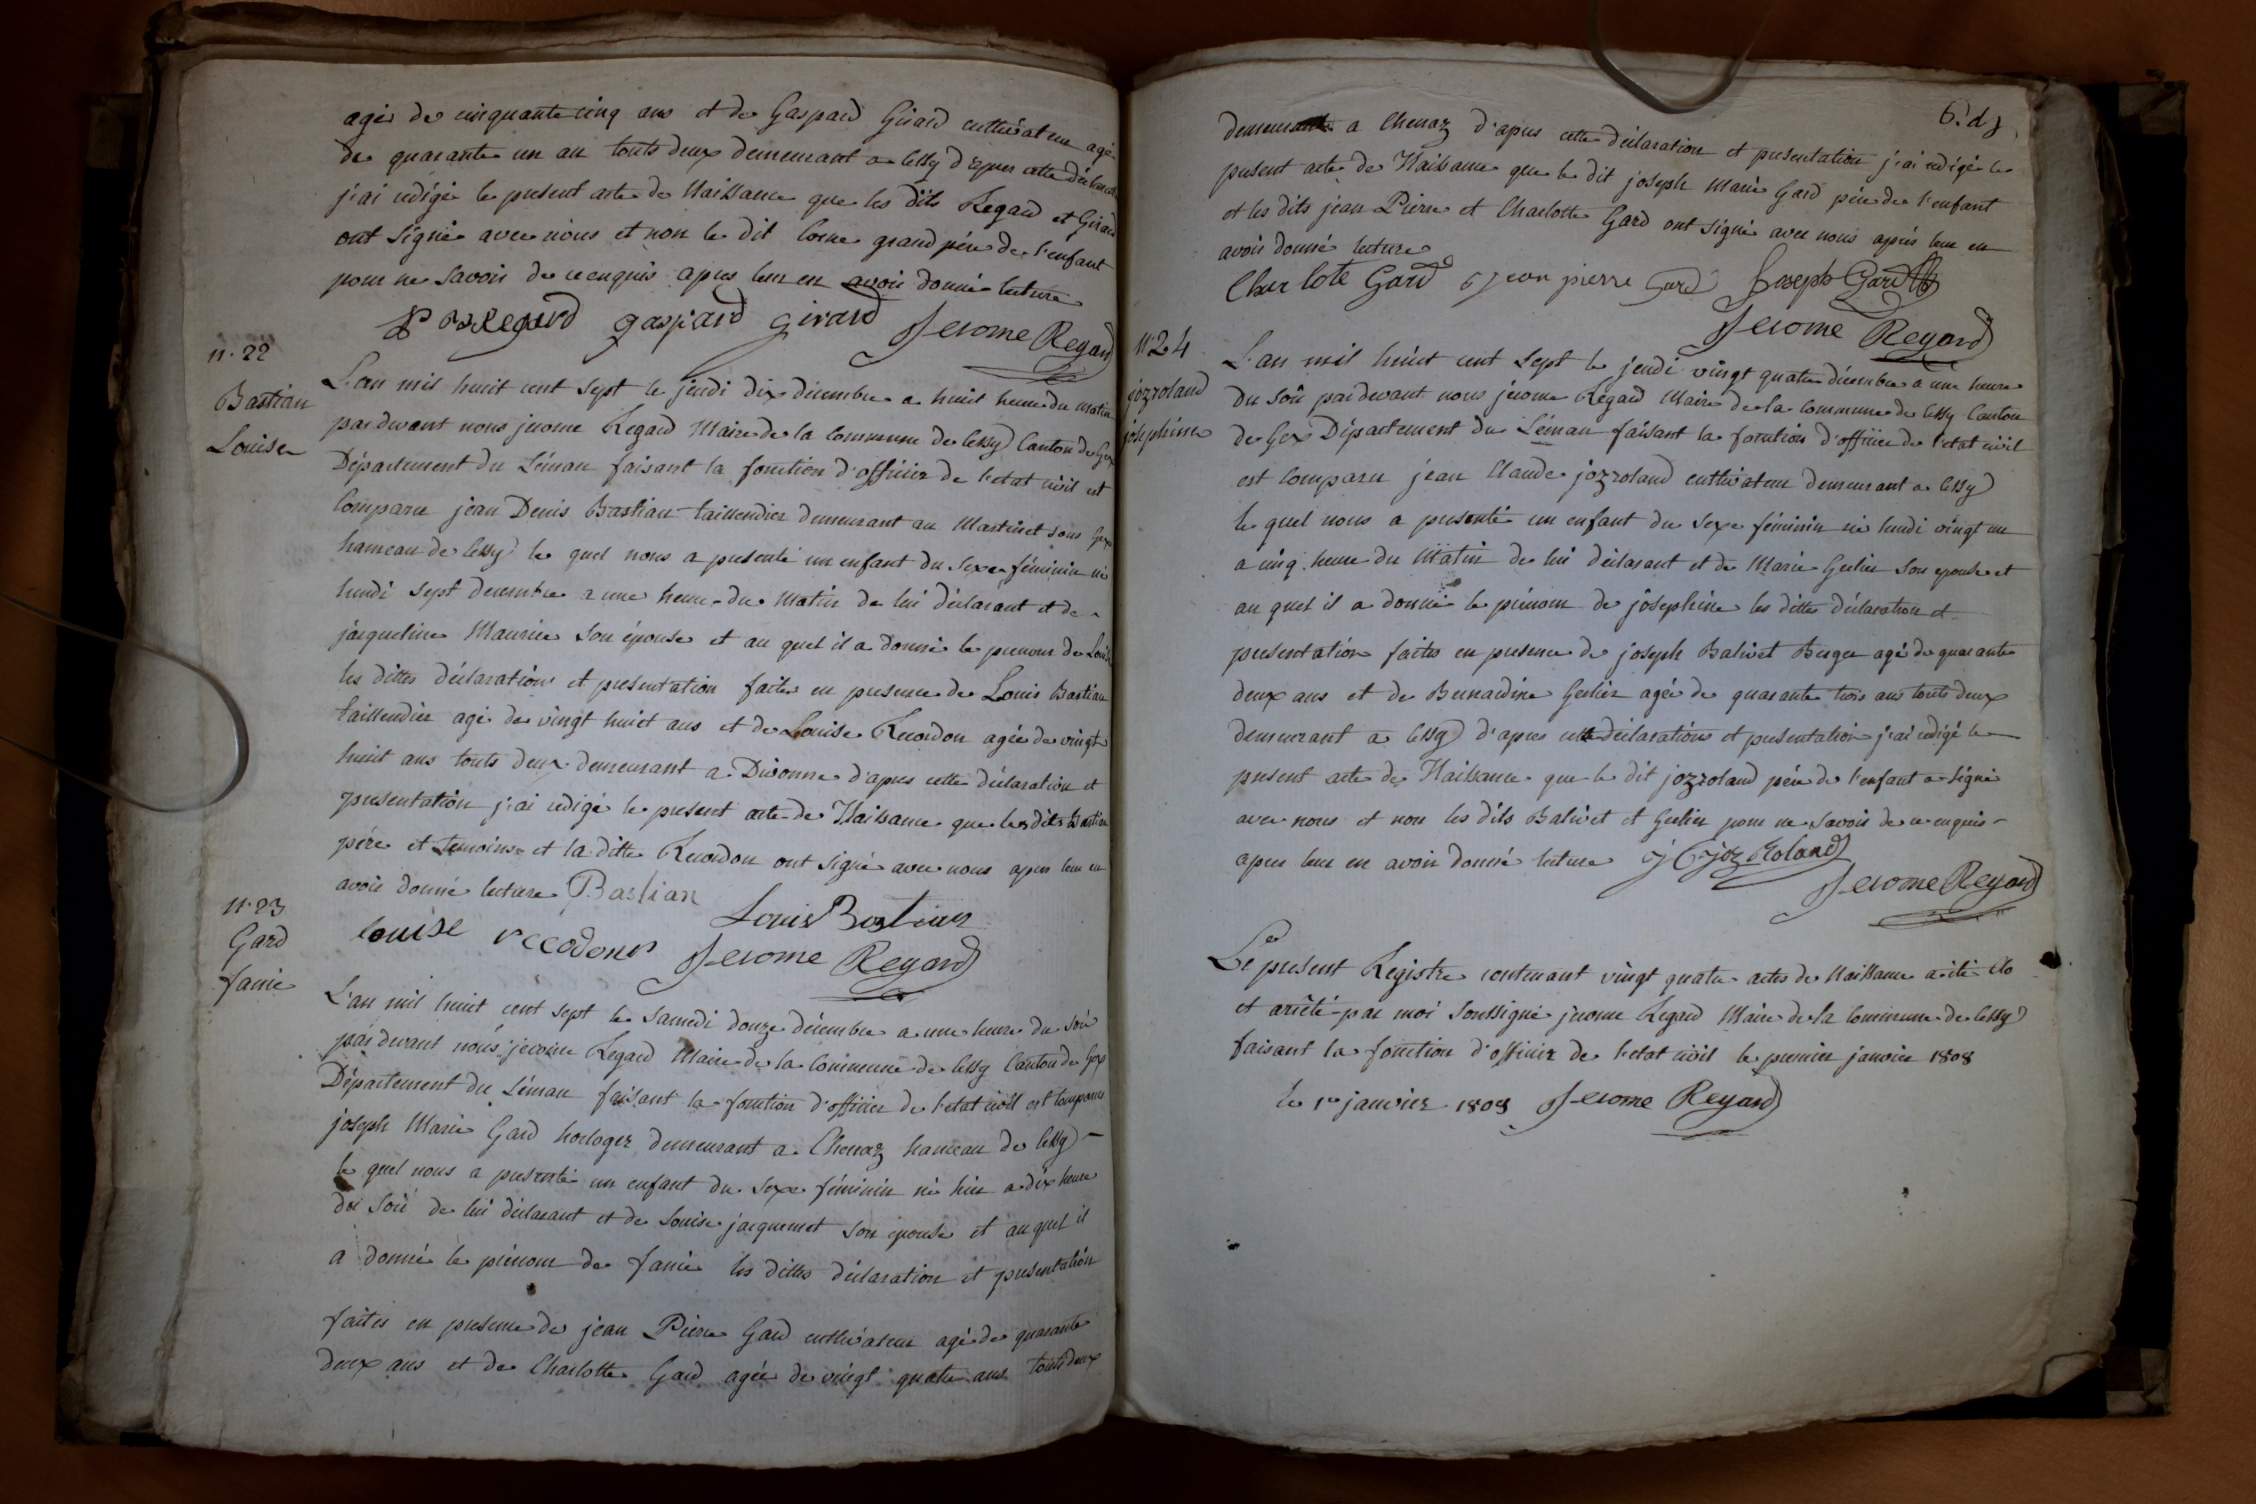 agé de cinquante cinq ans et de Gaspard Girard cultivateur agé
de quarante un an touts deux demeurant a Cessy d'apres cette déclaration
j'ai rédigé le present acte de Naissance que les dits Regard et Girard
ont signé avec nous et non le dit grand pére de l'enfant
pour ne savoir de ce enquis apres leur en avoir donné lecture
Regard gaspard girard Jerome Regard
n.22
Bastian
Louise
L'an mil huit cent sept le jeudi dix décembre a huit heure du matin
pardevant nous jerome Regard Maire de la Commune de Cessy Canton de Gex
Département du Léman faisant la fonction d'officier de l'etat civil est
Comparu jean Denis Bastian taillendier demeurant au Martinet sous Gex
hameau de Cessy le quel nous a presenté un enfant du sexe féminin né
lundi sept decembre a une heure du matin de lui déclarant et de
jacqueline Maurice son épouse et au quel il a donné le prenom de Louise
les dittes déclaration et presentation faites en presence de Louis Bastian
taillendier agé de vingt huit ans et de Louise Recordon agée de vingt
huit ans touts deux demeurant a Divonne d'apres cette déclaration et
presentation j'ai rédigé le present acte de Naissance que les dits Bastian
pére et temoins et la ditte Recordon ont signé avec nous apres leur en
avoir donné lecture Bastian
Louis Bastian
louise recodons Jerome Regard
n.23
Gard
fanie
L'an mil huit cent sept le samedi douze décembre a une heure du soir
pardevant nous jerome Regard Maire de la Commune de Cessy Canton de Gex
Département du Léman faisant la fonction d'officier de l'etat civil est comparu
joseph Marie Gard horloger demeurant a Chenaz hameau de Cessy
le quel nous a presenté un enfant du sexe féminin né hier a dix heure
du soir de lui déclarant et de Louise jacquemet son epouse et au quel il
a donné le prénom de fanie les dittes déclaration et presentation
faites en presence de jean Pierre Gard cultivateur agé de quarante
deux ans et de Charlotte Gard agée de vingt quatre ans touts deux
demeurant a Chenaz d'apres cette déclaration et presentation j'ai rédigé le
present acte de Naissance que le dit joseph Marie Gard pére de l'enfant
et les dits jean Pierre et Charlotte Gard ont signé avec nous aprés leur en
avoir donné lecture
Charlote Gard jean pierre Gard Joseph Gard
Jerome Regard
n.24
jozroland
joséphine
L'an mil huit cent sept le jeudi vingt quatre décembre a une heure
du soir pardevant nous jerome Regard Maire de la Commune de Cessy Canton
de Gex Département du Léman faisant la fonction d'officier de l'etat civil
est comparu jean Claude jozroland cultivateur demeurant a Cessy
le quel nous a presenté un enfant du sexe féminin né lundi vingt un
a cinq heure du Matin de lui déclarant et de Marie Gerlier son epouse et
au quel il a donné le prénom de joséphine les dittes déclaration et
presentation faites en presence de joseph Balivet Berger agé de quarante
deux ans et de Bernardine Gerlier agée de quarante trois ans touts deux
demeurant a Cessy d'apres cette déclaration et presentation j'ai rédigé le
present acte de Naissance que le dit jozroland pére de l'enfant a signé
avec nous et non les dits Balivet et Gerlier pour ne savoir de ce enquis
apres leur en avoir donné lecture j C joz Roland
Jerome Regard
Le present Registre contenant vingt quatre actes de Naissance a été clo
et arrêté par moi soussigné jerome Regard Maire de la Commune de Cessy
faisant la fonction d'officier de l'etat civil le premier janvier 1808
le 1er janvier 1808 Jerome Regard